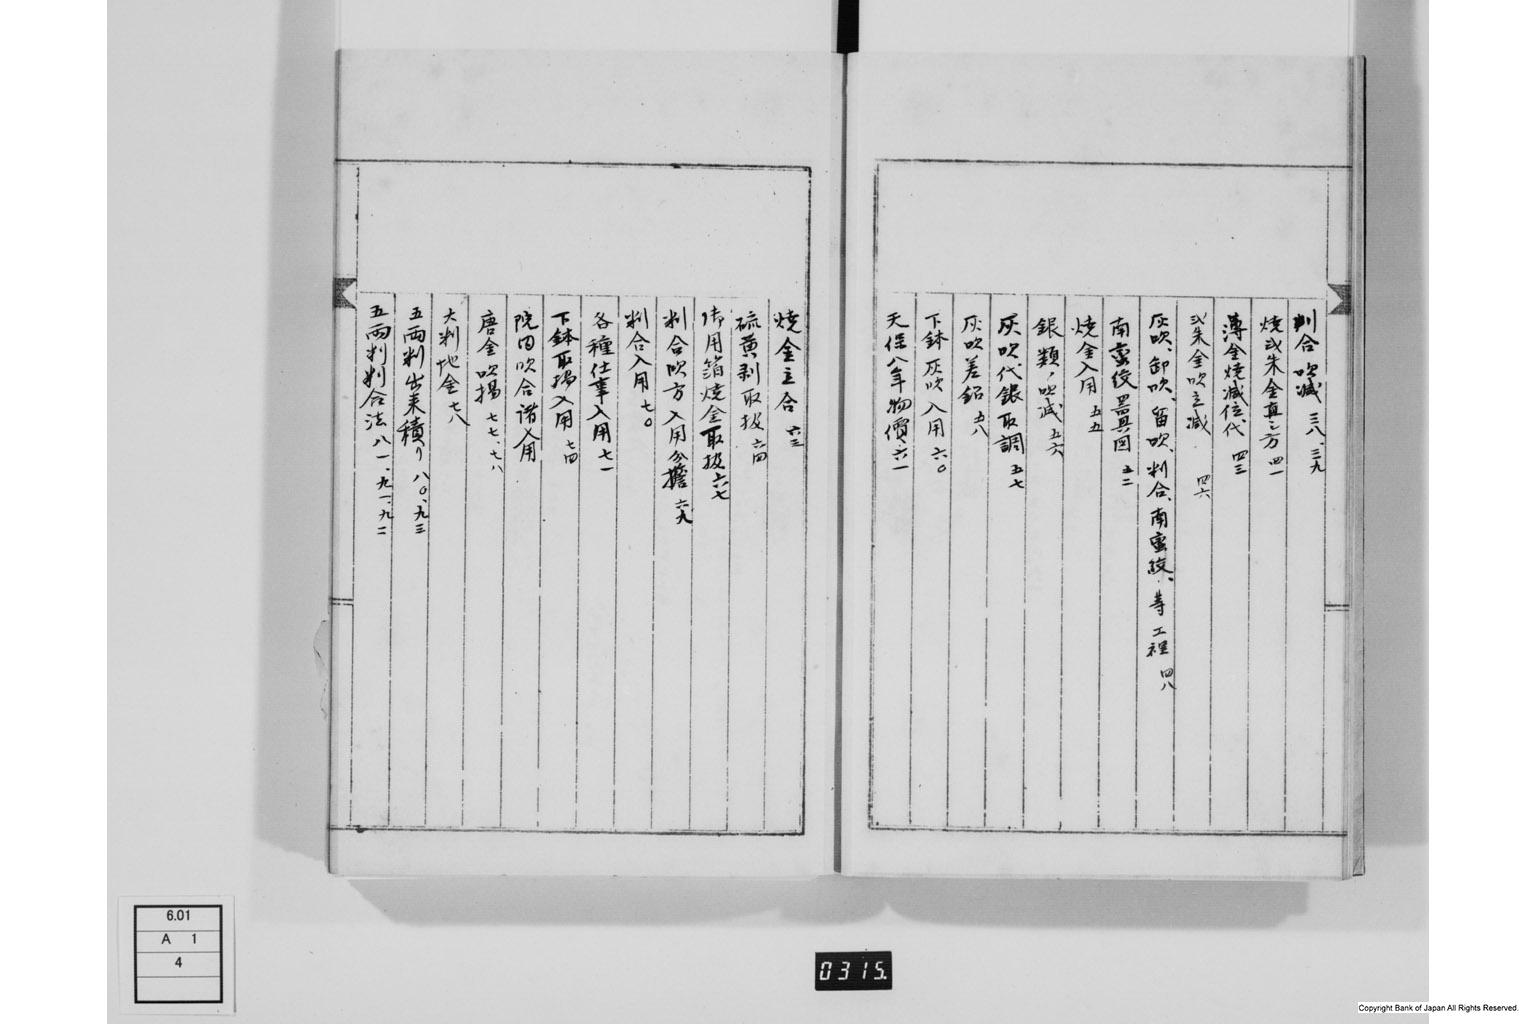 判合吹減 三八、三九
焼弐朱金真シ方 四一
薄金焼減位代 四三
弐朱金吹立減 四六
灰吹、卸吹、留吹、判合、南蛮絞、等工程 四八
南蛮絞器具図 五二
焼金入用 五五
銀類ノ吹減 五六
灰吹代銀取調 五七
灰吹差鉛 五八
下鉢灰吹入用 六〇
天保八年物價 六一
焼金主合 六三
硫黄剥取扱 六四
御用箔焼金取扱 六七
判合吹方入用分擔 六九
判合入用 七〇
各種仕事入用 七一
下鉢取揚入用 七四
院内吹合諸入用
唐金吹揚 七七、七八
大判地金 七八
五両判出来積り 八〇、九三
五両判判合法 八一、九一、九二
6.01
A 1
4
0315.
Copyright Bank of Japan All Rights Reserved.